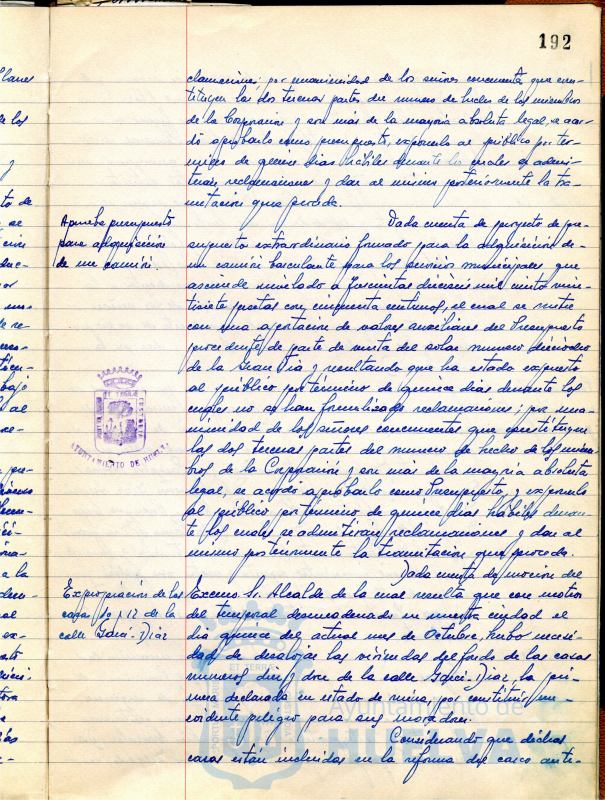 192
clamaciones; por unanimidad de los señores concurrentes que cons-
tituyen las dos terceras partes del numero de hecho de los miembros
de la Corporación y son más de la mayoria absoluta legal, se acor-
dó aprobarlo como presupuesto, exponerlo al público por ter-
mino de quince dias hábiles durante los cuales se admi-
tirán reclamaciones y dar al mismo posteriormente la tra-
mitacion que proceda.
Aprueba presupuesto
para adquisición
de un camión.
Dada cuenta de proyecto de pre-
supuesto extraordinario formado para la adquisición de
un camión basculante para los servicios municipales que
asciende nivelado a doscientas dieciseis mil ciento vein-
tisiete pesetas con cincuenta centimos, el cual se nutre
con una aportacion de valores auxiliares del Presupuesto
procedente de parte de venta del solar numero dieciocho
de la Gran Via y resultando que ha estado expuesto
al público por término de quince dias durante los
cuales no se han formalizado reclamaciones; por una-
nimidad de los señores concurrentes que constituyen
las dos terceras partes del numero de hecho de los miem-
bros de la Corporación y son más de la mayoria absoluta
legal, se acordó aprobarlo como Presupuesto, y exponerlo
al público por término de quince dias hábiles duran-
te los cuales se admitirán reclamaciones y dar al
mismo posteriormente la tramitacion que proceda.
AYUNTAMIENTO DE HUELVA
Expropiación de las
casas 10 y 12 de la
calle Garci-Diaz
Dada cuenta de moción del
Excmo. Sr. Alcalde de la cual resulta que con motivo
del temporal desencadenado en nuestra ciudad el
dia quince del actual mes de Octubre, hubo necesi-
dad de desalojar las viviendas del fondo de las casas
numeros diez y doce de la calle Garci-Diaz, la pri-
mera declarada en estado de ruina, por constituir un
evidente peligro para sus moradores.
Considerando que dichas
casas están incluidas en la reforma del casco ante-
Ayuntamiento de
HUELVA